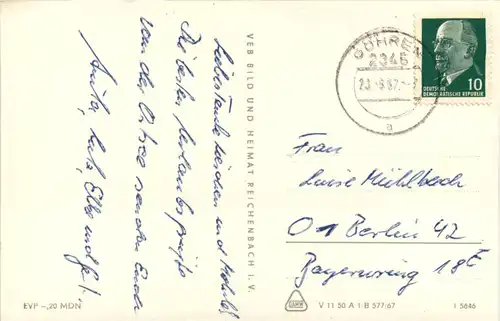 Liebe Tante und
Die besten Urlaubsgrüße
von der Ostsee senden Euch
Anita, Lutz, Elke und
VEB BILD UND HEIMAT REICHENBACH I. V.
GÖHREN
2345
DEUTSCHE
DEMOKRATISCHE REPUBLIK
10
a
Frau
Luise Mühlbach
Berlin 42
18
EVP –,20 MDN
V 11 50 A 1 B 577/67
1 5646